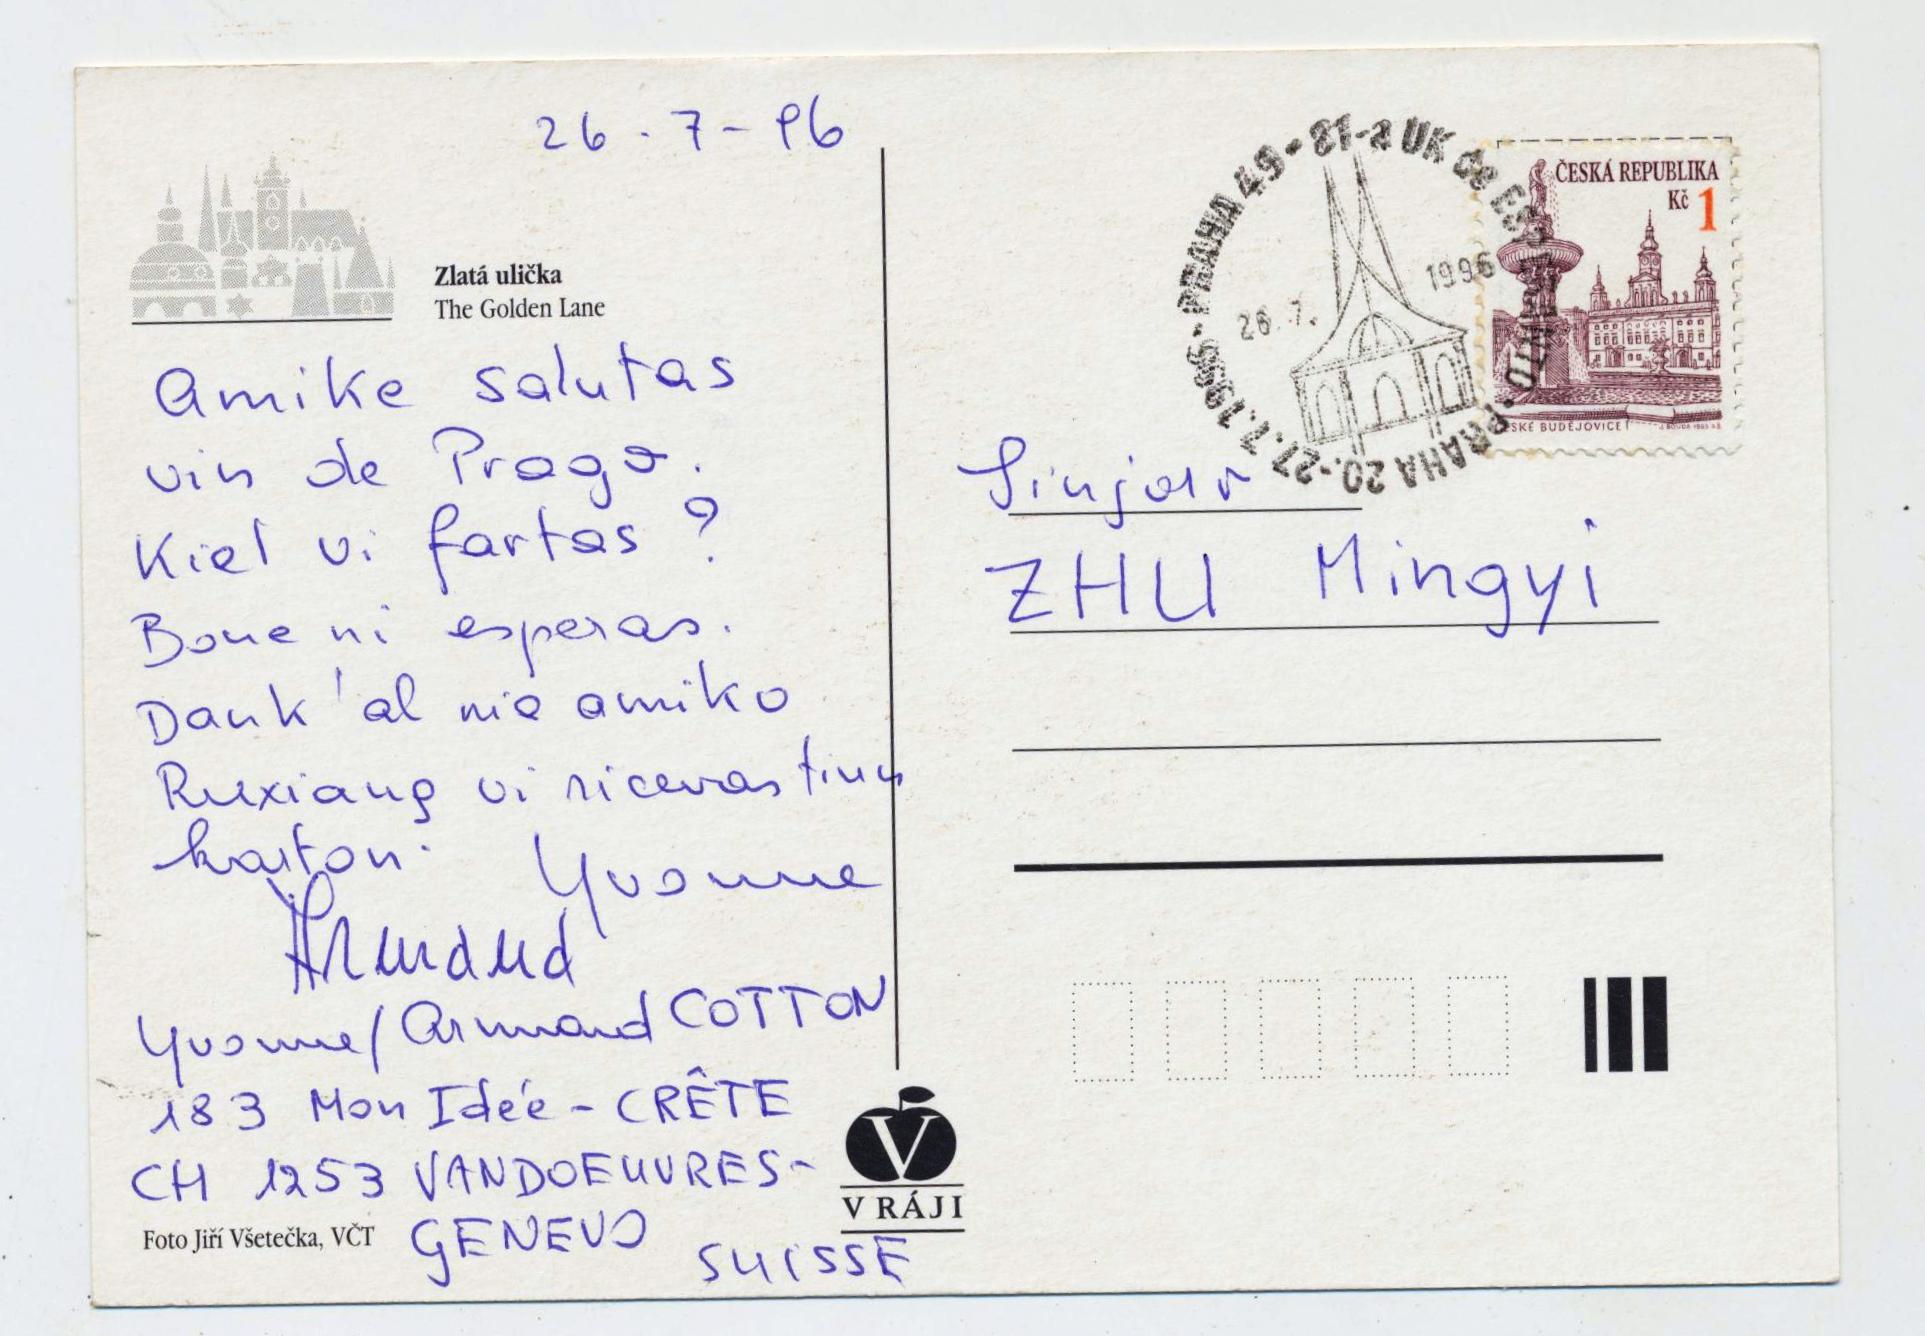 26.7-96
Zlatá ulička
The Golden Lane
Amike salutas
vin de Prago.
Kiel vi fartas ?
Bone ni esperas.
Dank' al nia amiko
Ruxiang vi ricevas tiun
karton.
Yvonne
Armand
Yvonne/Armand COTTON
183 Mon Idée - CRÊTE
CH 1253 VANDOEUVRES-
GENEVO
SUISSE
Foto Jiří Všetečka, VČT
V
V RÁJI
PRAHA 49 • 81-a UK de ESPERANTO • PRAHA 20.-27.7.1996 •
26.7. 1996
ČESKÁ REPUBLIKA
Kč 1
ČESKÉ BUDĚJOVICE
J. BOUDA 1993
Sinjoro
ZHU Mingyi